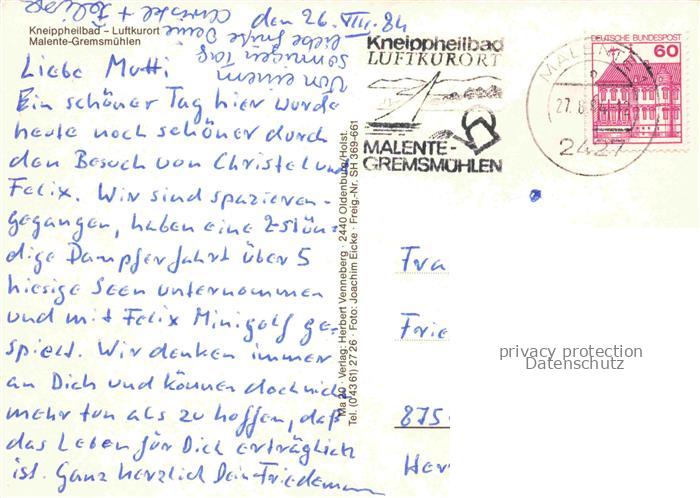 Kneippheilbad – Luftkurort
Malente-Gremsmühlen
den 26. VIII. 84
Liebe Mutti
Ein schöner Tag hier wurde
heute noch schöner durch
den Besuch von Christel und
Felix. Wir sind spazieren-
gegangen, haben eine 2-stün-
dige Dampferfahrt über 5
hiesige Seen unternommen
und mit Felix Minigolf ge-
spielt. Wir denken immer
an Dich und können doch nicht
mehr tun als zu hoffen, daß
das Leben für Dich erträglich
ist. Ganz herzlich Dein Friedemann
Von einem
sonnigen Tag
liebe Grüße Deine
Christel + Felix
Ma 20 · Verlag: Herbert Venneberg · 2440 Oldenburg/Holst.
Tel. (04361) 2726 · Foto: Joachim Eicke · Freig.-Nr. SH 369-661
Kneippheilbad
LUFTKURORT
MALENTE-
GREMSMÜHLEN
MALENTE
27.8.84
2427
DEUTSCHE BUNDESPOST
60
Fra
Frie
875
Her
privacy protection
Datenschutz